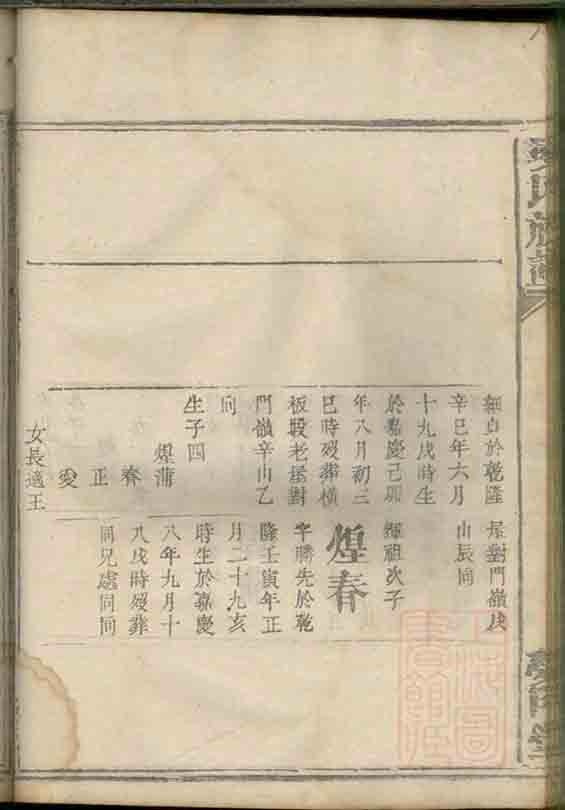 氏族譜
細貞於乾隆
辛巳年六月
十九戌時生
於嘉慶己卯
年八月初三
巳時歿葬橫
板塅老屋對
門嶺辛山乙
向
生子四
煌蒲
齊
正
愛
女長適王
屋對門嶺戌
山辰向
輝祖次子
煌春
字勝先於乾
隆壬寅年正
月二十九亥
時生於嘉慶
八年九月十
八戌時歿葬
同兄處同向
上海圖
書館藏